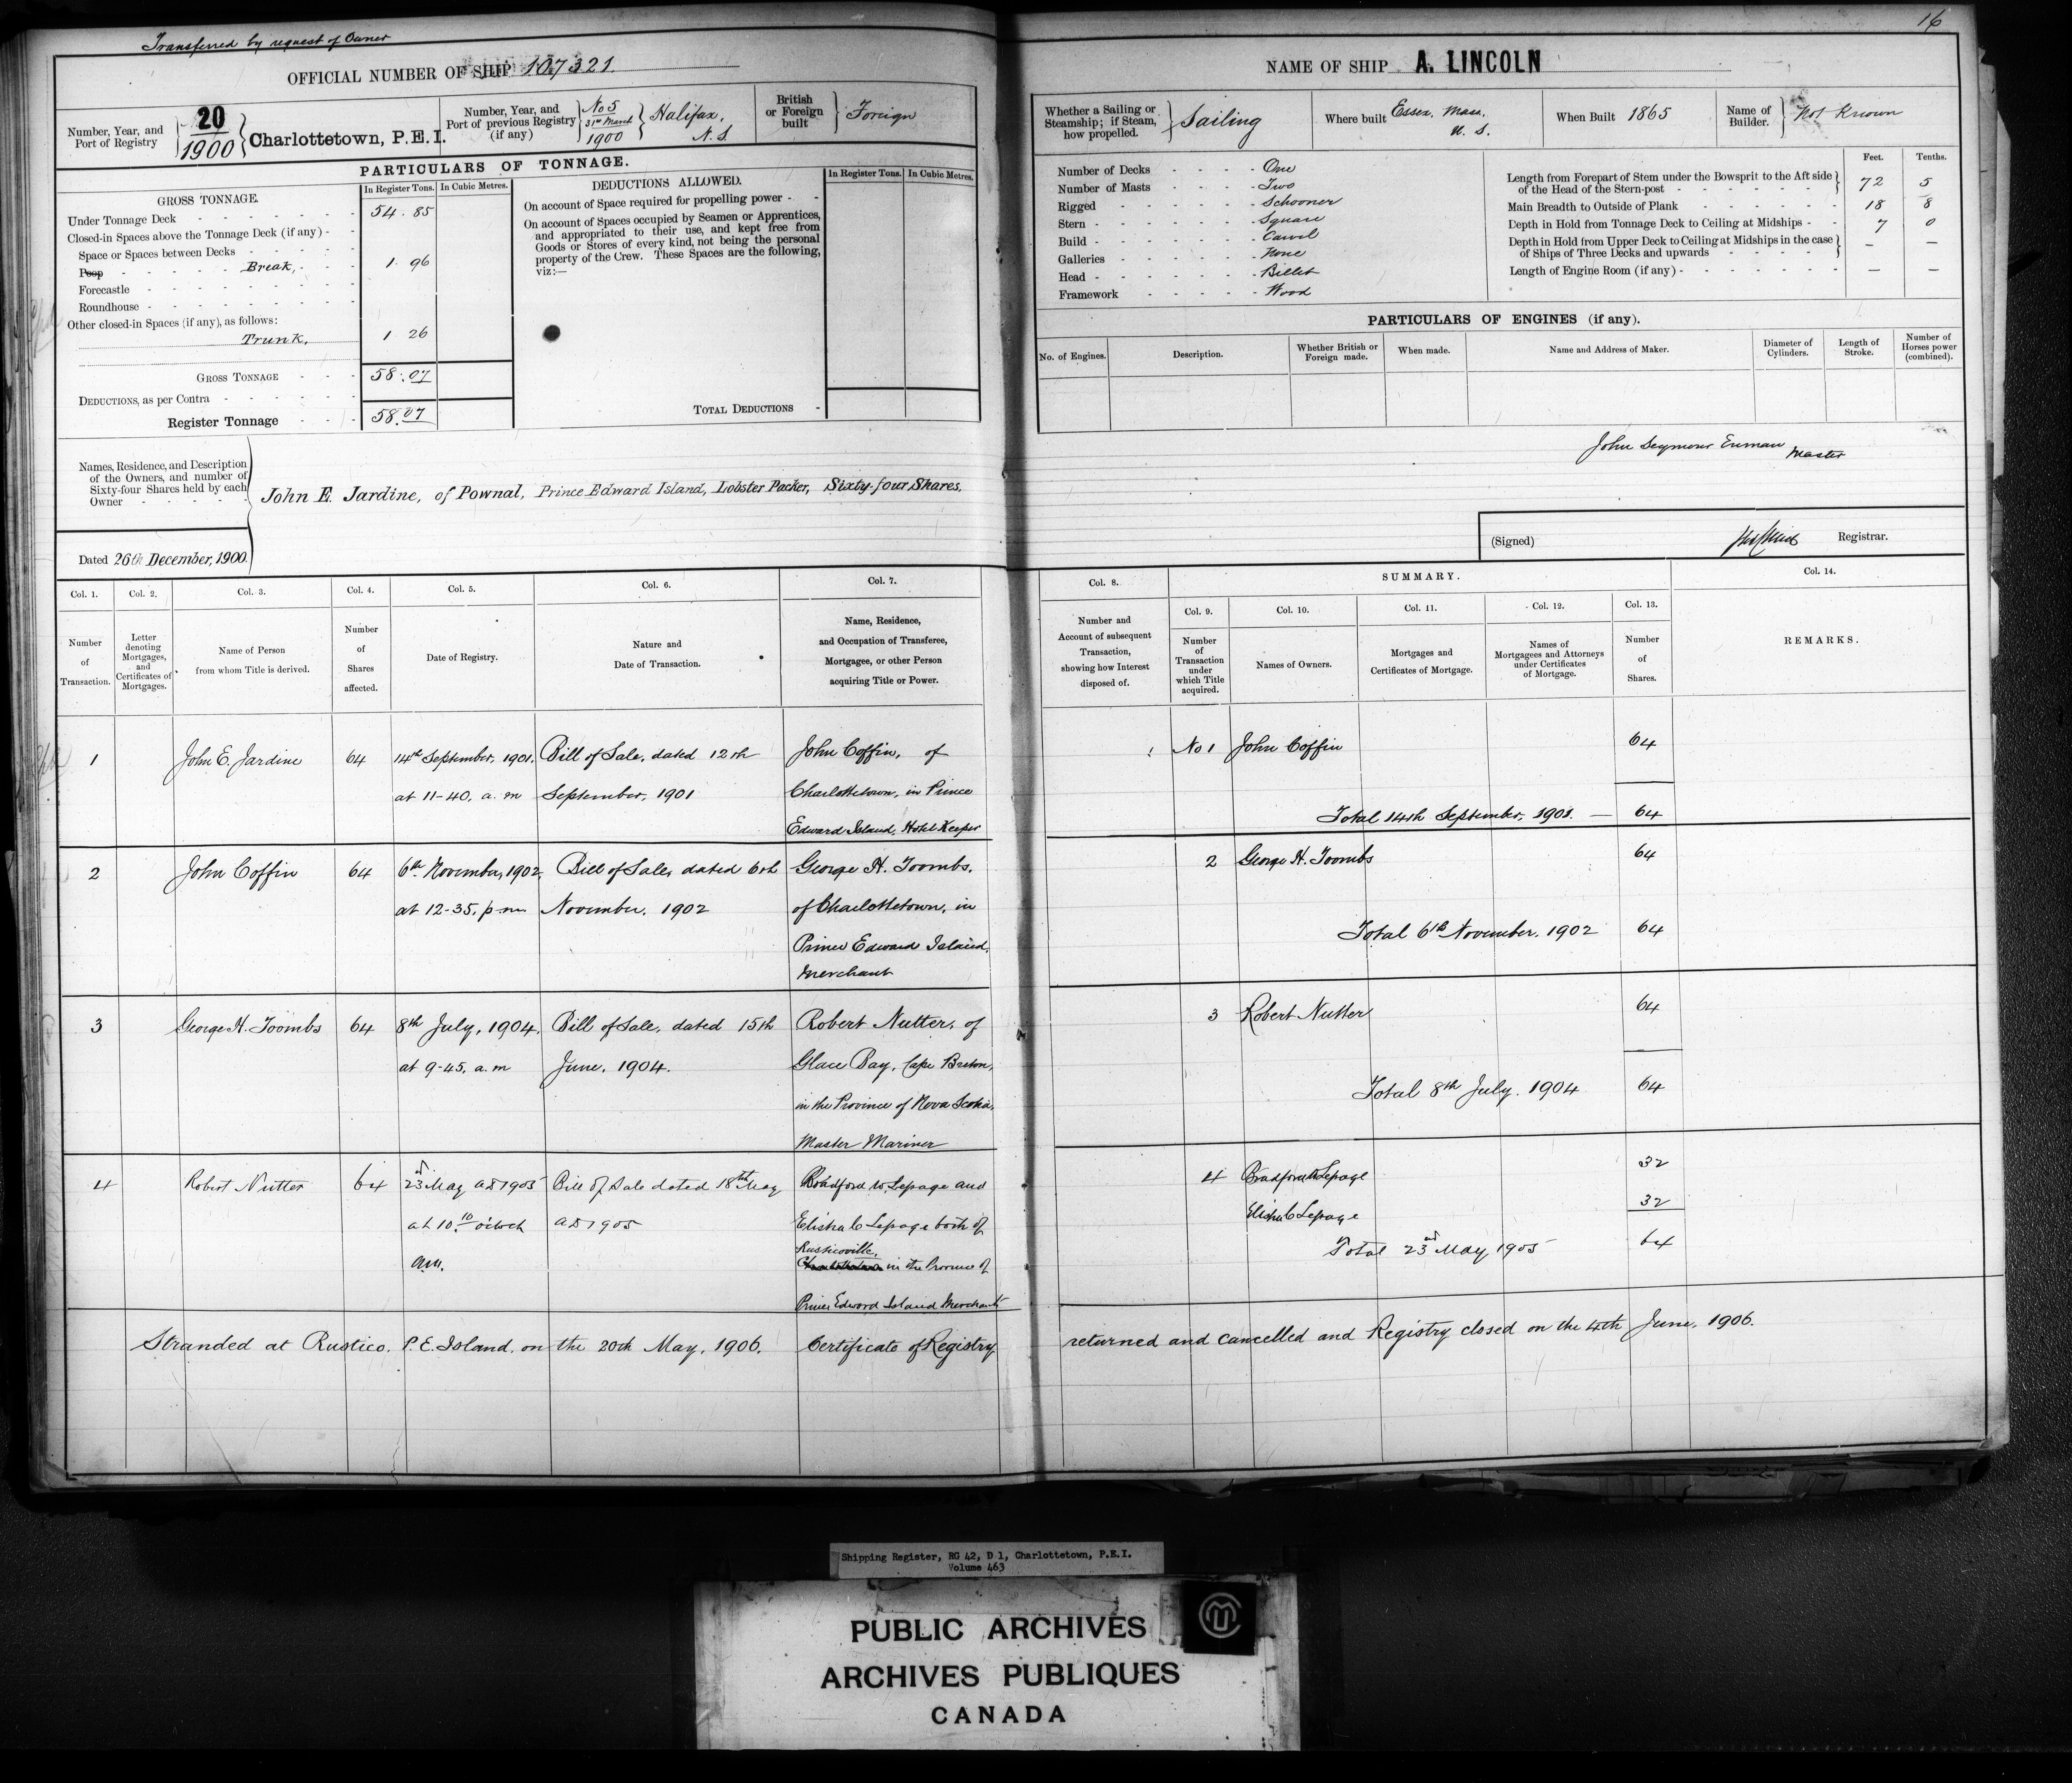 16
Transferred by request of Owner
OFFICIAL NUMBER OF SHIP 107321.
Number, Year, and
Port of Registry
20
1900
Charlottetown, P.E.I.
Number, Year, and
Port of previous Registry
(if any)
No 5
31st March
1900
Halifax,
N. S.
British
or Foreign
built
Foreign
PARTICULARS OF TONNAGE.
GROSS TONNAGE.
In Register Tons.
In Cubic Metres.
Under Tonnage Deck
54. 85
Closed-in Spaces above the Tonnage Deck (if any) -
Space or Spaces between Decks
Poop Break,
1. 96
Forecastle
Roundhouse
Other closed-in Spaces (if any), as follows:
Trunk,
1 26
GROSS TONNAGE
58.07
DEDUCTIONS, as per Contra
Register Tonnage
58.07
DEDUCTIONS ALLOWED.
In Register Tons.
In Cubic Metres.
On account of Space required for propelling power -
On account of Spaces occupied by Seamen or Apprentices,
and appropriated to their use, and kept free from
Goods or Stores of every kind, not being the personal
property of the Crew. These Spaces are the following,
viz:—
TOTAL DEDUCTIONS -
Names, Residence, and Description
of the Owners, and number of
Sixty-four Shares held by each
Owner
John E. Jardine, of Pownal, Prince Edward Island, Lobster Packer, Sixty-four Shares.
Dated 26th December, 1900.
NAME OF SHIP A. LINCOLN
Whether a Sailing or
Steamship; if Steam,
how propelled.
Sailing
Where built
Essex, Mass,
U. S.
When Built 1865
Name of
Builder.
Not Known
Number of Decks - One
Number of Masts - Two
Rigged - Schooner
Stern - Square
Build - Carvel
Galleries - None
Head - Billet
Framework - Wood
Feet. Tenths.
Length from Forepart of Stem under the Bowsprit to the Aft side
of the Head of the Stern-post
72 5
Main Breadth to Outside of Plank 18 8
Depth in Hold from Tonnage Deck to Ceiling at Midships - 7 0
Depth in Hold from Upper Deck to Ceiling at Midships in the case
of Ships of Three Decks and upwards
— —
Length of Engine Room (if any) - — —
PARTICULARS OF ENGINES (if any).
No. of Engines.
Description.
Whether British or
Foreign made.
When made.
Name and Address of Maker.
Diameter of
Cylinders.
Length of
Stroke.
Number of
Horses power
(combined).
John Seymour Enman
Master
(Signed)
Registrar.
Col. 1.
Number
of
Transaction.
Col. 2.
Letter
denoting
Mortgages,
and
Certificates of
Mortgages.
Col. 3.
Name of Person
from whom Title is derived.
Col. 4.
Number
of
Shares
affected.
Col. 5.
Date of Registry.
Col. 6.
Nature and
Date of Transaction.
Col. 7.
Name, Residence,
and Occupation of Transferee,
Mortgagee, or other Person
acquiring Title or Power.
Col. 8.
Number and
Account of subsequent
Transaction,
showing how Interest
disposed of.
SUMMARY.
Col. 9.
Number
of
Transaction
under
which Title
acquired.
Col. 10.
Names of Owners.
Col. 11.
Mortgages and
Certificates of Mortgage.
Col. 12.
Names of
Mortgagees and Attorneys
under Certificates
of Mortgage.
Col. 13.
Number
of
Shares.
Col. 14.
REMARKS.
1
John E. Jardine
64
14th September, 1901.
at 11-40, a. m
Bill of Sale, dated 12th
September, 1901
John Coffin, of
Charlottetown, in Prince
Edward Island, Hotel Keeper
No 1 John Coffin 64
Total 14th September, 1901. — 64
2
John Coffin
64
6th November, 1902,
at 12-35, p m
Bill of Sale, dated 6th
November, 1902
George H. Toombs,
of Charlottetown, in
Prince Edward Island,
Merchant
2 George H. Toombs 64
Total 6th November, 1902 64
3
George H. Toombs
64
8th July, 1904,
at 9-45, a. m
Bill of Sale, dated 15th
June, 1904.
Robert Nutter, of
Glace Bay, Cape Breton,
in the Province of Nova Scotia,
Master Mariner
3 Robert Nutter 64
Total 8th July, 1904 64
4
Robert Nutter
64
23rd May AD 1905
at 10.10 o'clock
am.
Bill of Sale dated 18th May
AD 1905
Bradford W. Lepage and
Elisha C Lepage both of
Rusticoville,
Charlottetown in the Province of
Prince Edward Island Merchants
4 Bradford W Lepage 32
Elisha C Lepage 32
Total 23rd May 1905 64
Stranded at Rustico, P. E. Island, on the 20th May, 1906. Certificate of Registry returned and cancelled and Registry closed on the 4th June, 1906.
Shipping Register, RG 42, D 1, Charlottetown, P.E.I.
Volume 463
PUBLIC ARCHIVES
ARCHIVES PUBLIQUES
CANADA